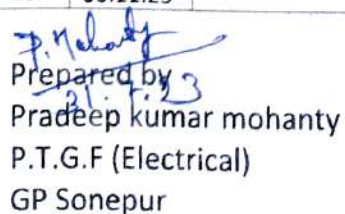 P. Mohanty
Prepared by
Pradeep kumar mohanty
P.T.G.F (Electrical)
GP Sonepur